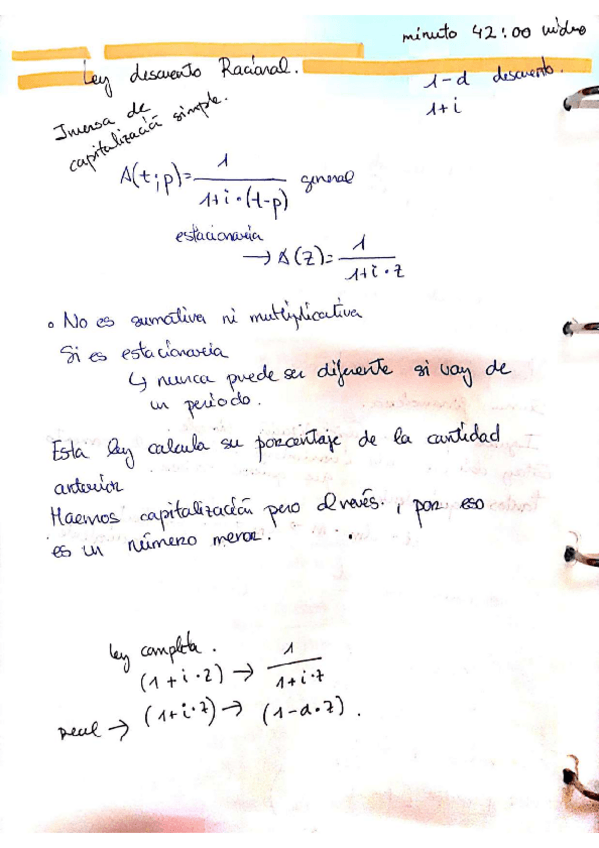 minuto 42:00 video
Ley descuento Racional.
1-d descuento.
1+i
Inversa de
capitalización simple.
A(t;p)= 1/(1+i·(t-p)) general
estacionaria
→ A(z)= 1/(1+i·z)
• No es sumativa ni multiplicativa
Si es estacionaria
↳ nunca puede ser diferente si voy de
un periodo.
Esta ley calcula su porcentaje de la cantidad
anterior
Haemos capitalización pero al revés, por eso
es un número menor.
ley completa.
(1+i·z) → 1/(1+i·z)
real → (1+i·z) → (1-d·z).